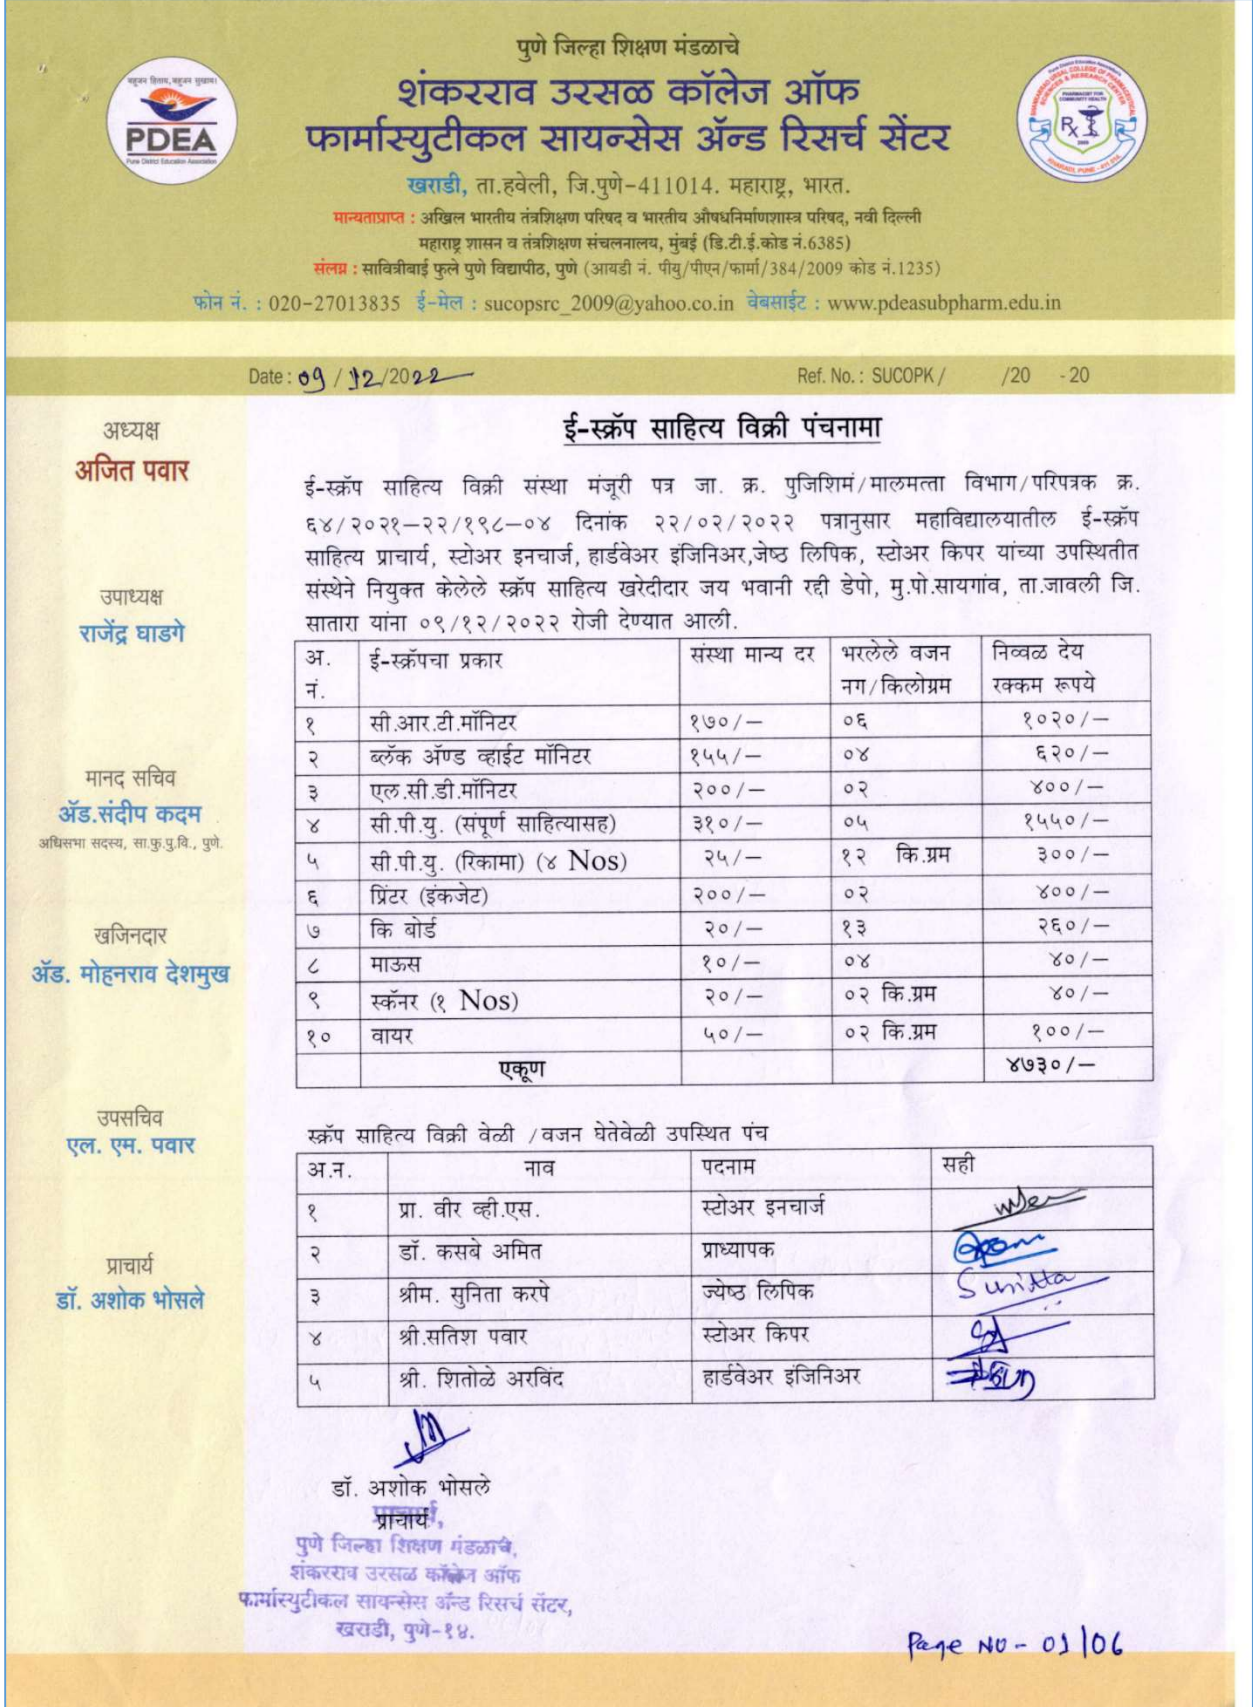 पुणे जिल्हा शिक्षण मंडळाचे
शंकरराव उरसळ कॉलेज ऑफ
फार्मास्युटीकल सायन्सेस ॲन्ड रिसर्च सेंटर
बहुजन हिताय, बहुजन सुखाय।
PDEA
Pune District Education Association
PHARMACIST FOR
COMMUNITY HEALTH
Rx
2009
खराडी, ता.हवेली, जि.पुणे-411014. महाराष्ट्र, भारत.
मान्यताप्राप्त : अखिल भारतीय तंत्रशिक्षण परिषद व भारतीय औषधनिर्माणशास्त्र परिषद, नवी दिल्ली
महाराष्ट्र शासन व तंत्रशिक्षण संचलनालय, मुंबई (डि.टी.ई.कोड नं.6385)
संलग्न : सावित्रीबाई फुले पुणे विद्यापीठ, पुणे (आयडी नं. पीयु/पीएन/फार्मा/384/2009 कोड नं.1235)
फोन नं. : 020-27013835 ई-मेल : sucopsrc_2009@yahoo.co.in वेबसाईट : www.pdeasubpharm.edu.in
Date : 09 / 12/2022
Ref. No. : SUCOPK / /20 - 20
अध्यक्ष
अजित पवार
उपाध्यक्ष
राजेंद्र घाडगे
मानद सचिव
ॲड.संदीप कदम
अधिसभा सदस्य, सा.फु.पु.वि., पुणे.
खजिनदार
ॲड. मोहनराव देशमुख
उपसचिव
एल. एम. पवार
प्राचार्य
डॉ. अशोक भोसले
ई-स्क्रॅप साहित्य विक्री पंचनामा
ई-स्क्रॅप साहित्य विक्री संस्था मंजूरी पत्र जा. क्र. पुजिशिमं/मालमत्ता विभाग/परिपत्रक क्र.
६४/२०२१-२२/१९८-०४ दिनांक २२/०२/२०२२ पत्रानुसार महाविद्यालयातील ई-स्क्रॅप
साहित्य प्राचार्य, स्टोअर इनचार्ज, हार्डवेअर इंजिनिअर,जेष्ठ लिपिक, स्टोअर किपर यांच्या उपस्थितीत
संस्थेने नियुक्त केलेले स्क्रॅप साहित्य खरेदीदार जय भवानी रद्दी डेपो, मु.पो.सायगांव, ता.जावली जि.
सातारा यांना ०९/१२/२०२२ रोजी देण्यात आली.
अ. नं. ई-स्क्रॅपचा प्रकार संस्था मान्य दर भरलेले वजन नग/किलोग्रम निव्वळ देय रक्कम रूपये
१ सी.आर.टी.मॉनिटर १७०/- ०६ १०२०/-
२ ब्लॅक ॲण्ड व्हाईट मॉनिटर १५५/- ०४ ६२०/-
३ एल.सी.डी.मॉनिटर २००/- ०२ ४००/-
४ सी.पी.यु. (संपूर्ण साहित्यासह) ३१०/- ०५ १५५०/-
५ सी.पी.यु. (रिकामा) (४ Nos) २५/- १२ कि.ग्रम ३००/-
६ प्रिंटर (इंकजेट) २००/- ०२ ४००/-
७ कि बोर्ड २०/- १३ २६०/-
८ माऊस १०/- ०४ ४०/-
९ स्कॅनर (१ Nos) २०/- ०२ कि.ग्रम ४०/-
१० वायर ५०/- ०२ कि.ग्रम १००/-
एकूण ४७३०/-
स्क्रॅप साहित्य विक्री वेळी /वजन घेतेवेळी उपस्थित पंच
अ.न. नाव पदनाम सही
१ प्रा. वीर व्ही.एस. स्टोअर इनचार्ज
२ डॉ. कसबे अमित प्राध्यापक
३ श्रीम. सुनिता करपे ज्येष्ठ लिपिक Sunitta
४ श्री.सतिश पवार स्टोअर किपर
५ श्री. शितोळे अरविंद हार्डवेअर इंजिनिअर
डॉ. अशोक भोसले
प्राचार्य
प्राचार्य,
पुणे जिल्हा शिक्षण मंडळाचे,
शंकरराव उरसळ कॉलेज ऑफ
फार्मास्युटीकल सायन्सेस ॲन्ड रिसर्च सेंटर,
खराडी, पुणे-१४.
Page NO - 01/06